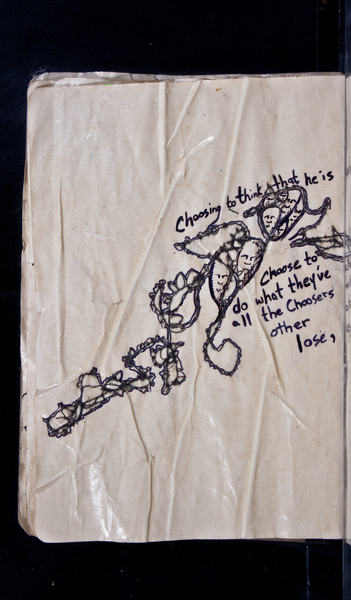 Choosing to think that he is
Choose to
do what they've
all the Choosers
other
lose,